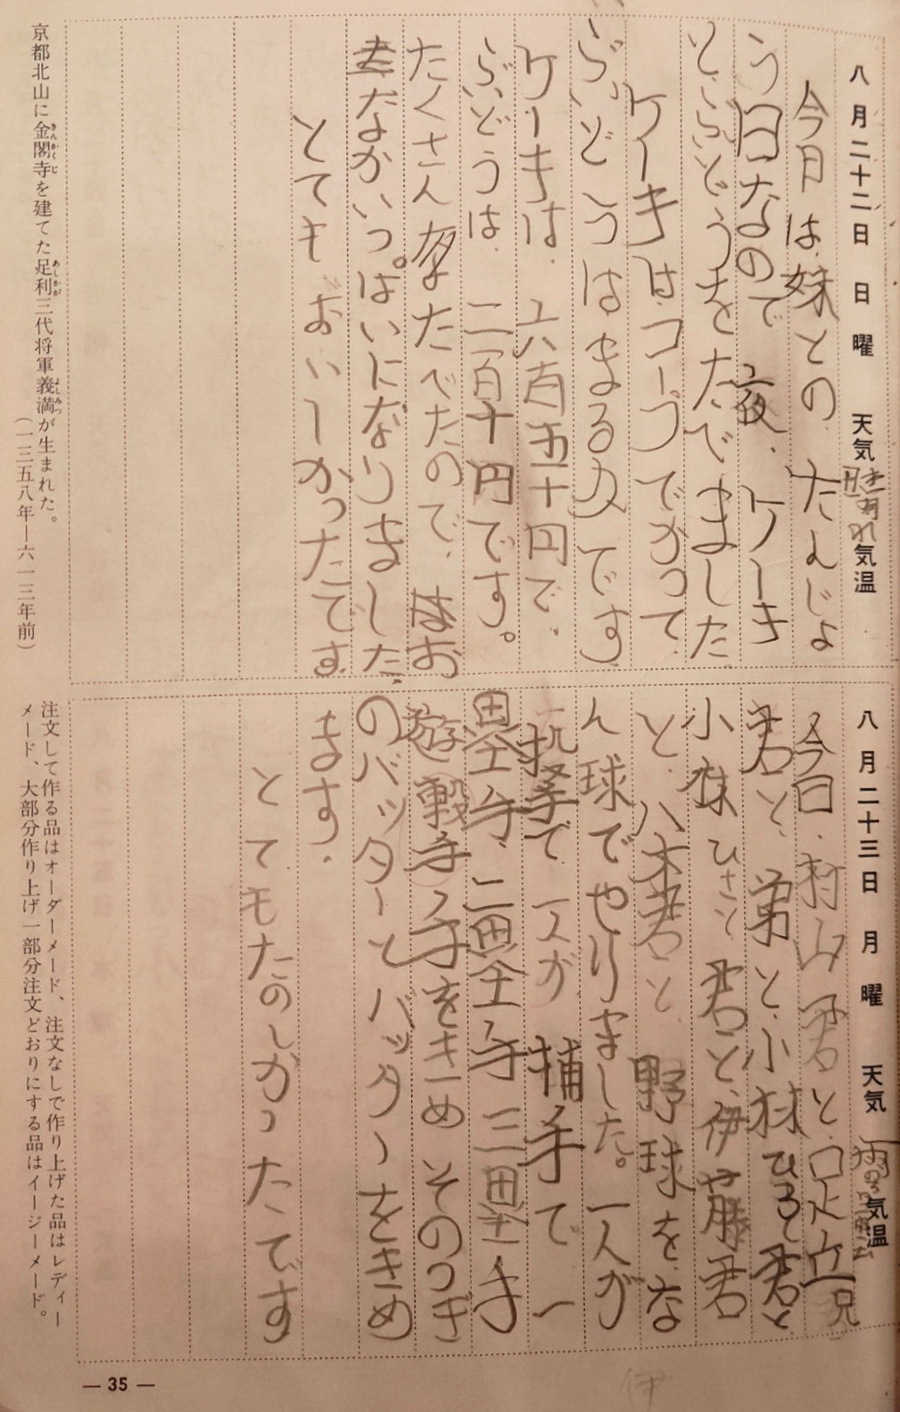 八月二十二日 日曜 天気 晴れ 気温
今日は妹とのたんじょ
う日なので夜、ケーキ
とぶどうをたべました
ケーキはコープでかって
ぶどうはまる久です
ケーキは、六百五十円で、
ぶどうは、二百十円です。
たくさんたべたので、おお
なかいっぱいになりました。
とてもおいしかったです
京都北山に金閣寺を建てた足利三代将軍義満が生まれた。
(一三五八年―六一三年前)
八月二十三日 月曜 天気 雨のち 気温
今日、村山君と
君と、弟と小林ひろと君と
小林ひさと君と、伊藤君
と、八木君と、野球をな
ん球でやりました。一人が
投手で、一人が捕手で一
塁手、二塁手三塁手
遊撃手をきめそのつぎ
のバッターとバッターをきめ
ます。
とてもたのしかったです
注文して作る品はオーダーメード、注文なしで作り上げた品はレディー
メード、大部分作り上げ一部分注文どおりにする品はイージーメード。
― 35 ―